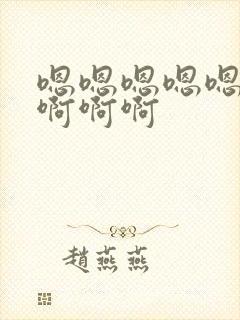 嗯嗯嗯嗯嗯
啊啊啊
趙燕燕